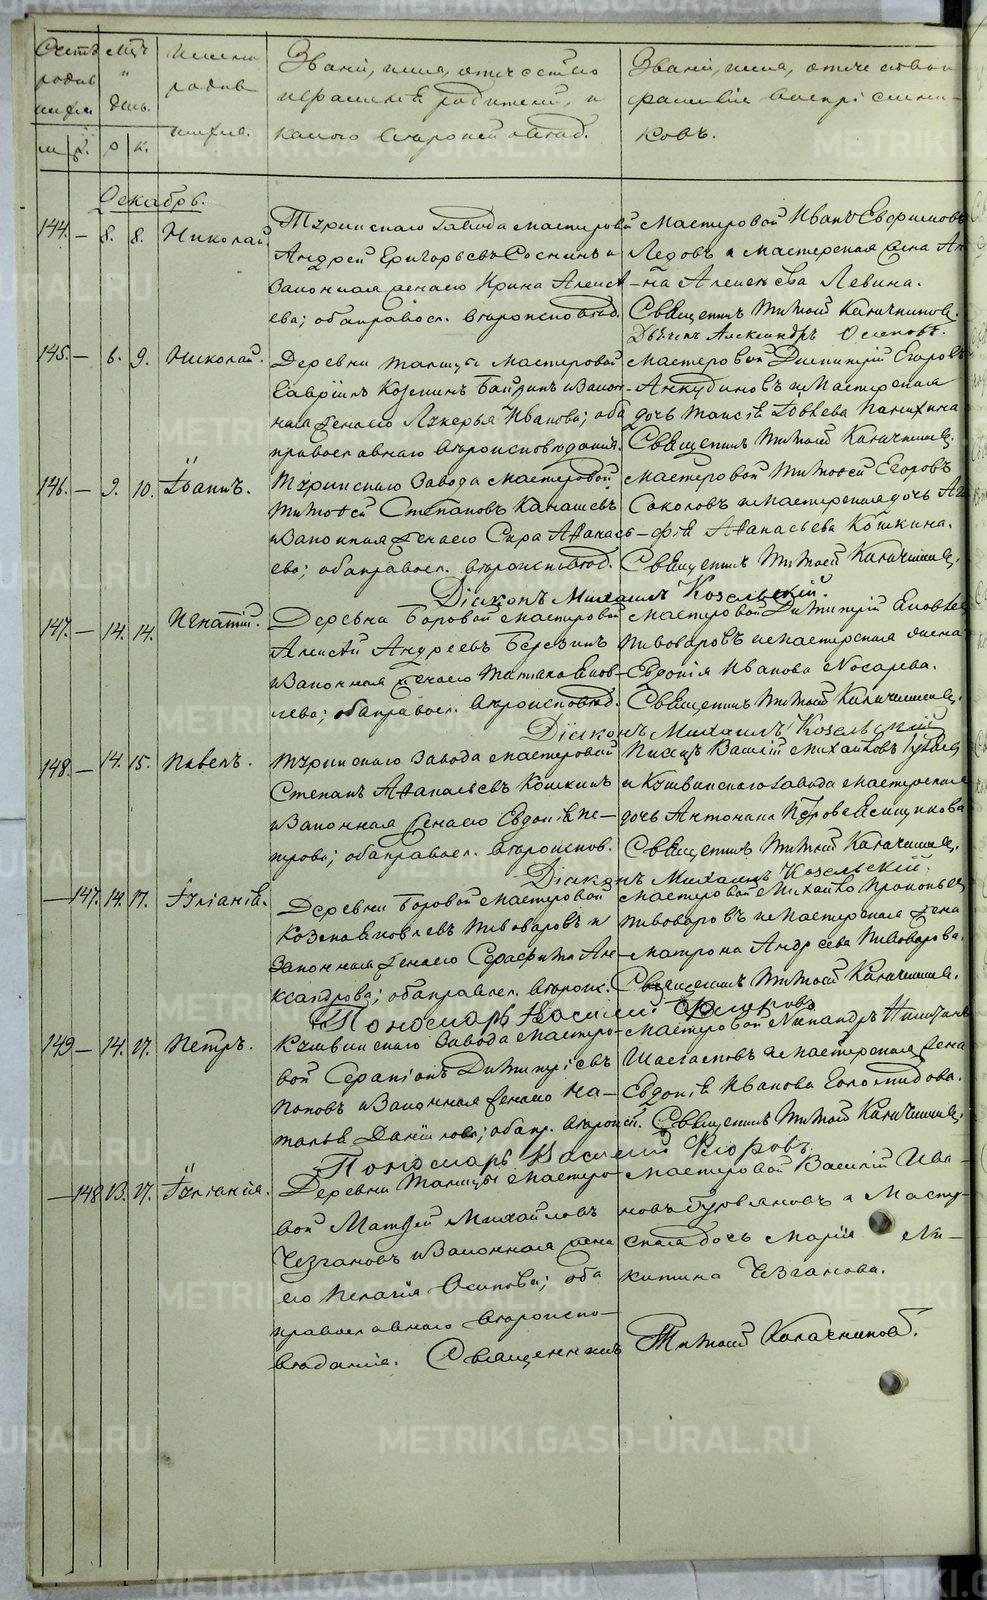 Счетъ родив шихся
м. ж.
Мцъ и день.
р. к.
Имена родив шихся.
Званіе, имя, отчество
и фамилія родителей, и
какого вѣроисповѣд.
Званіе, имя, отчество и
фамилія воспріемни-
ковъ.
Декабрь.
144. — 8. 8. Николай.
Туринскаго завода мастеровой
Андрей Григорьевъ Соснинъ и
законная жена его Ирина Алексѣ-
ева; оба правосл. вѣроисповѣд.
Мастеровой Иванъ Евфимовъ
Ледовъ и мастерская жена Ан-
на Алексѣева Левина.
Священникъ Тимоѳей Калачниковъ.
Дьячекъ Александръ Осиповъ.
145. — 6. 9. Николай.
Деревни Талицы мастеровой
Гавріилъ Козминъ Байдинъ и закон-
ная жена его Лукерья Иванова; оба
православнаго вѣроисповѣданія.
Мастеровой Димитрій Егоровъ
Анкудиновъ и мастерская
дочь Таисія Іовлева Панихина
Священникъ Тимоѳей Калачниковъ.
146. — 9. 10. Іоаннъ.
Туринскаго завода мастеровой
Тимоѳей Степановъ Канашевъ
и законная жена его Сира Аѳанась-
ева; оба правосл. вѣроисповѣд.
Мастеровой Тимоѳей Егоровъ
Соколовъ и мастерская дочь Ага-
фія Аѳанасьева Кошкина.
Священникъ Тимоѳей Калачниковъ.
Діаконъ Михаилъ Козельскій.
147. — 14. 14. Игнатій.
Деревни Боровой мастеровой
Алексѣй Андреевъ Березинъ
и законная жена его Татіана Яков-
лева; оба правосл. вѣроисповѣд.
Мастеровой Димитрій Яковлев
Пивоваровъ и мастерская жена
Евдокія Иванова Носарева.
Священникъ Тимоѳей Калачниковъ.
Діаконъ Михаилъ Козельскій
148. — 14. 15. Павелъ.
Туринскаго завода мастеровой
Степанъ Аѳанасьевъ Кошкинъ
и законная жена его Евдокія Пе-
трова; оба правосл. вѣроиспов.
Писецъ Василій Михайловъ
и Кушвинскаго завода мастерская
дочь Антонина Петрова Ямщикова
Священникъ Тимоѳей Калачниковъ.
Діаконъ Михаилъ Козельскій.
— 147. 14. 17. Іуліанія.
Деревни Боровой мастеровой
Козма Яковлевъ Пивоваровъ и
законная жена его Серафима Але-
ксандрова; оба правосл. вѣроисп.
Мастеровой Михайло Прокопьев
Пивоваровъ и мастерская жена
Матрона Андреева Пивоварова.
Священникъ Тимоѳей Калачниковъ.
Пономарь Василій Флоровъ
149 — 14. 17. Петръ.
Кушвинскаго завода мастеро-
вой Серапіонъ Димитріевъ
Поповъ и законная жена его На-
талья Даніилова; оба пр. вѣроисп.
Мастеровой Никандръ Никитинъ
Шастовъ и мастерская жена
Евдокія Иванова Голомидова.
Священникъ Тимоѳей Калачниковъ.
Пономарь Василій Флоровъ.
— 148. 13. 17. Іуліанія.
Деревни Талицы мастеро-
вой Матѳей Михайловъ
Чезгановъ и законная жена
его Пелагія Осипова; оба
православнаго вѣроиспо-
вѣданія.
Мастеровой Василій Ива-
новъ Бурьяновъ и масте-
рская дочь Марія Ни-
китина Чезганова.
Священникъ Тимоѳей Калачниковъ.
METRIKI.GASO-URAL.RU